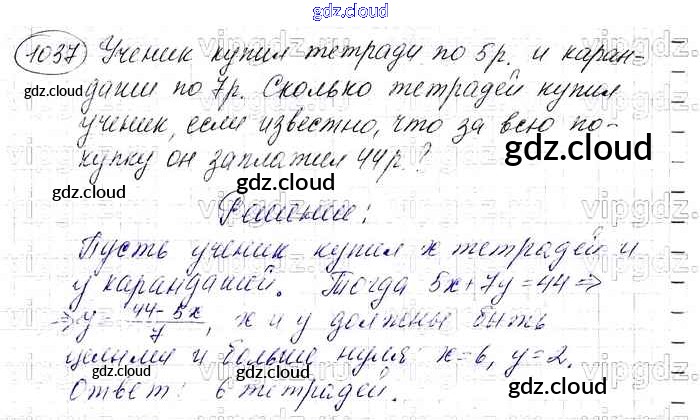 gdz.cloud
1037 Ученик купил тетради по 5р. и каран-
даши по 7р. Сколько тетрадей купил
gdz.cloud
ученик, если известно, что за всю по-
gdz.cloud
купку он заплатил 44р.?
gdz.cloud
gdz.cloud
Решение:
Пусть ученик купил x тетрадей и
y карандашей. Тогда 5x+7y=44 =>
gdz.cloud
=> y = (44-5x)/7, x и y должны быть
целыми и больше нуля x=6, y=2.
gdz.cloud
gdz.cloud
Ответ: 6 тетрадей.
vipgdz